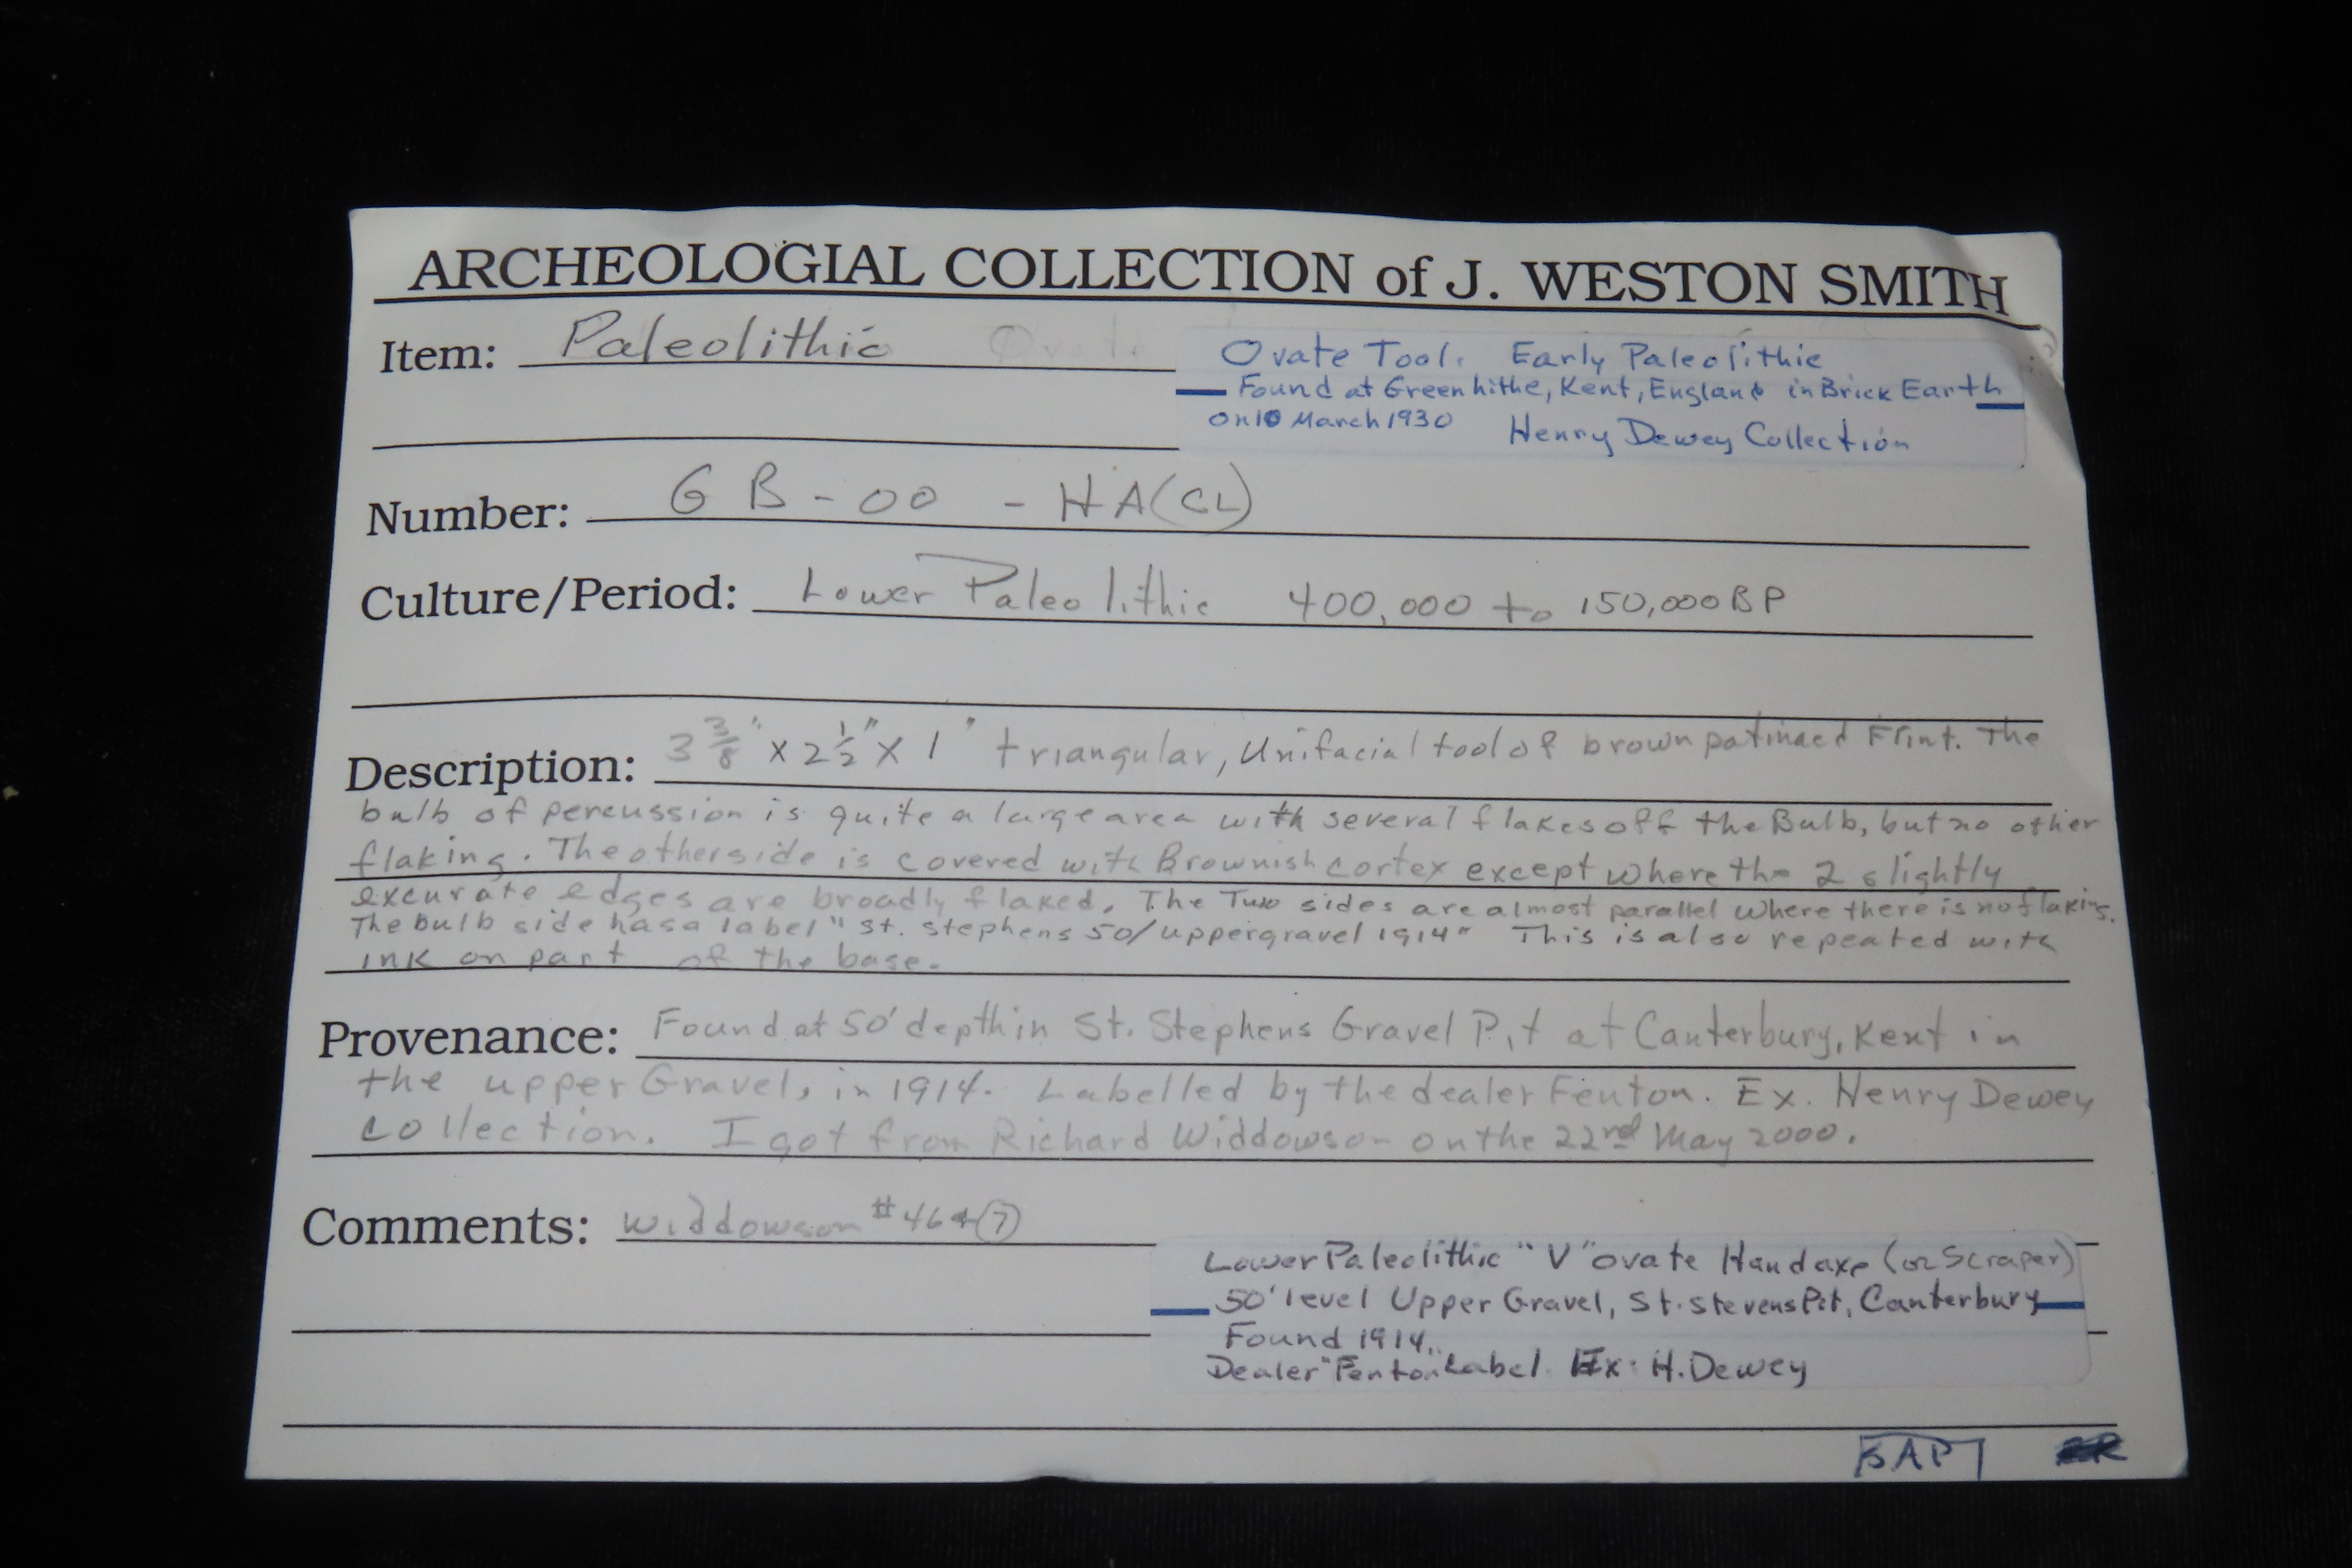 ARCHEOLOGIAL COLLECTION of J. WESTON SMITH
Item: Paleolithic Ovate
Ovate Tool. Early Paleolithic
Found at Greenhithe, Kent, England in Brick Earth
on 10 March 1930 Henry Dewey Collection
Number: GB-00 - HA(CL)
Culture/Period: Lower Paleolithic 400,000 to 150,000 BP
Description: 3 3/8" x 2 1/2" x 1" triangular, Unifacial tool of brown patinaed Flint. The
bulb of percussion is quite a large area with several flakes off the Bulb, but no other
flaking. The otherside is covered with Brownish cortex except where the 2 slightly
excurate edges are broadly flaked. The Two sides are almost parallel where there is no flaking.
The bulb side has a label "St. Stephens 50/uppergravel 1914" This is also repeated with
ink on part of the base.
Provenance: Found at 50' depth in St. Stephens Gravel Pit at Canterbury, Kent in
the upper Gravel, in 1914. Labelled by the dealer Fenton. Ex. Henry Dewey
collection. I got from Richard Widdowson on the 22nd May 2000.
Comments: Widdowson #46 7
Lower Paleolithic "V" ovate Handaxe (or Scraper)
50' level Upper Gravel, St. Stevens Pit, Canterbury
Found 1914.
Dealer "Fenton" Label. Ex: H. Dewey